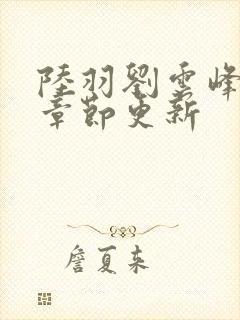 陸羽劉雲峰
章節更新
詹夏來